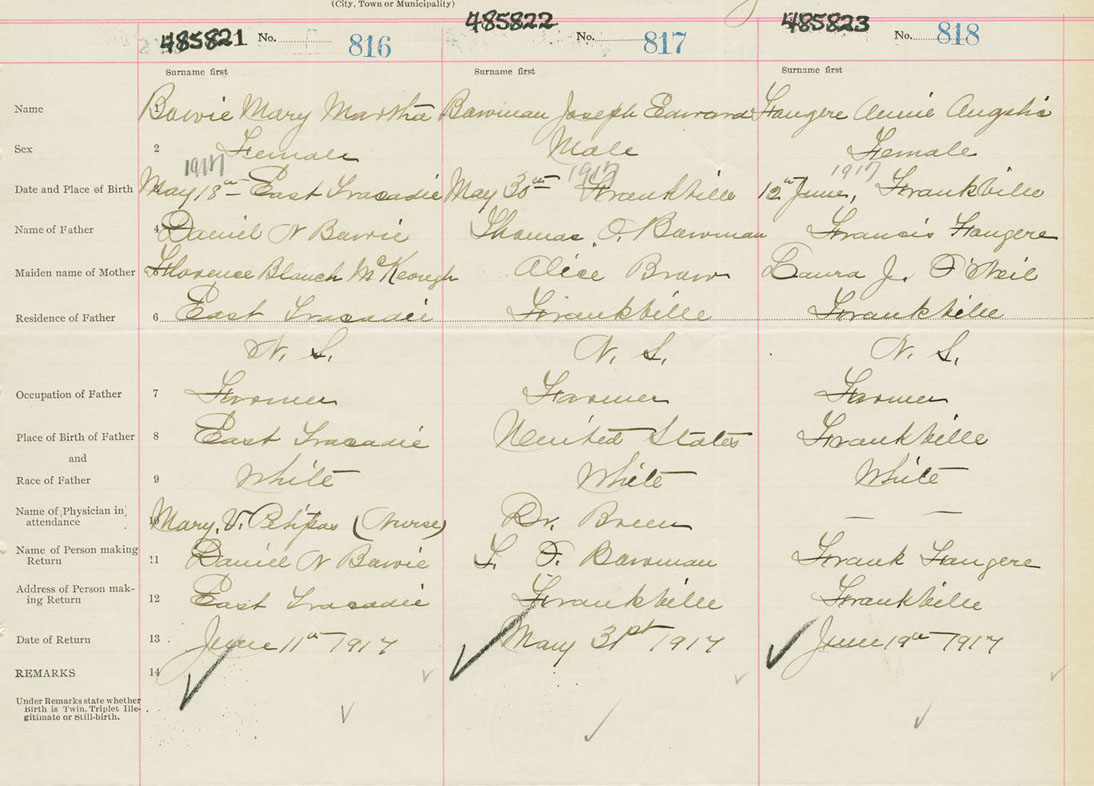 (City, Town or Municipality)
485821 No. 816 485822 No. 817 485823 No. 818
Surname first Surname first Surname first
Name 1 Bowie Mary Martha Bowman Joseph Edward Faugere Annie
Sex 2 Female Male Female
1917 1917 1917
Date and Place of Birth May 18th East Tracadie May 30th Frankville 12th June, Frankville
Name of Father 4 Daniel N Bowie Thomas. F. Bowman Francis Faugere
Maiden name of Mother Florence Blanch McKeough Alice Braw Laura J. O'Neil
Residence of Father 6 East Tracadie Frankville Frankville
N. S. N. S. N. S.
Occupation of Father 7 Farmer Farmer Farmer
Place of Birth of Father 8 East Tracadie United States Frankville
and
Race of Father 9 White White White
Name of Physician in
attendance 10 Mary. V. Petipas (Nurse) Dr. Breen — —
Name of Person making
Return 11 Daniel N Bowie T. F. Bowman Frank Faugere
Address of Person mak-
ing Return 12 East Tracadie Frankville Frankville
Date of Return 13 June 11th 1917 May 31st 1917 June 19th 1917
REMARKS 14
Under Remarks state whether
Birth is Twin, Triplet Ille-
gitimate or Still-birth.